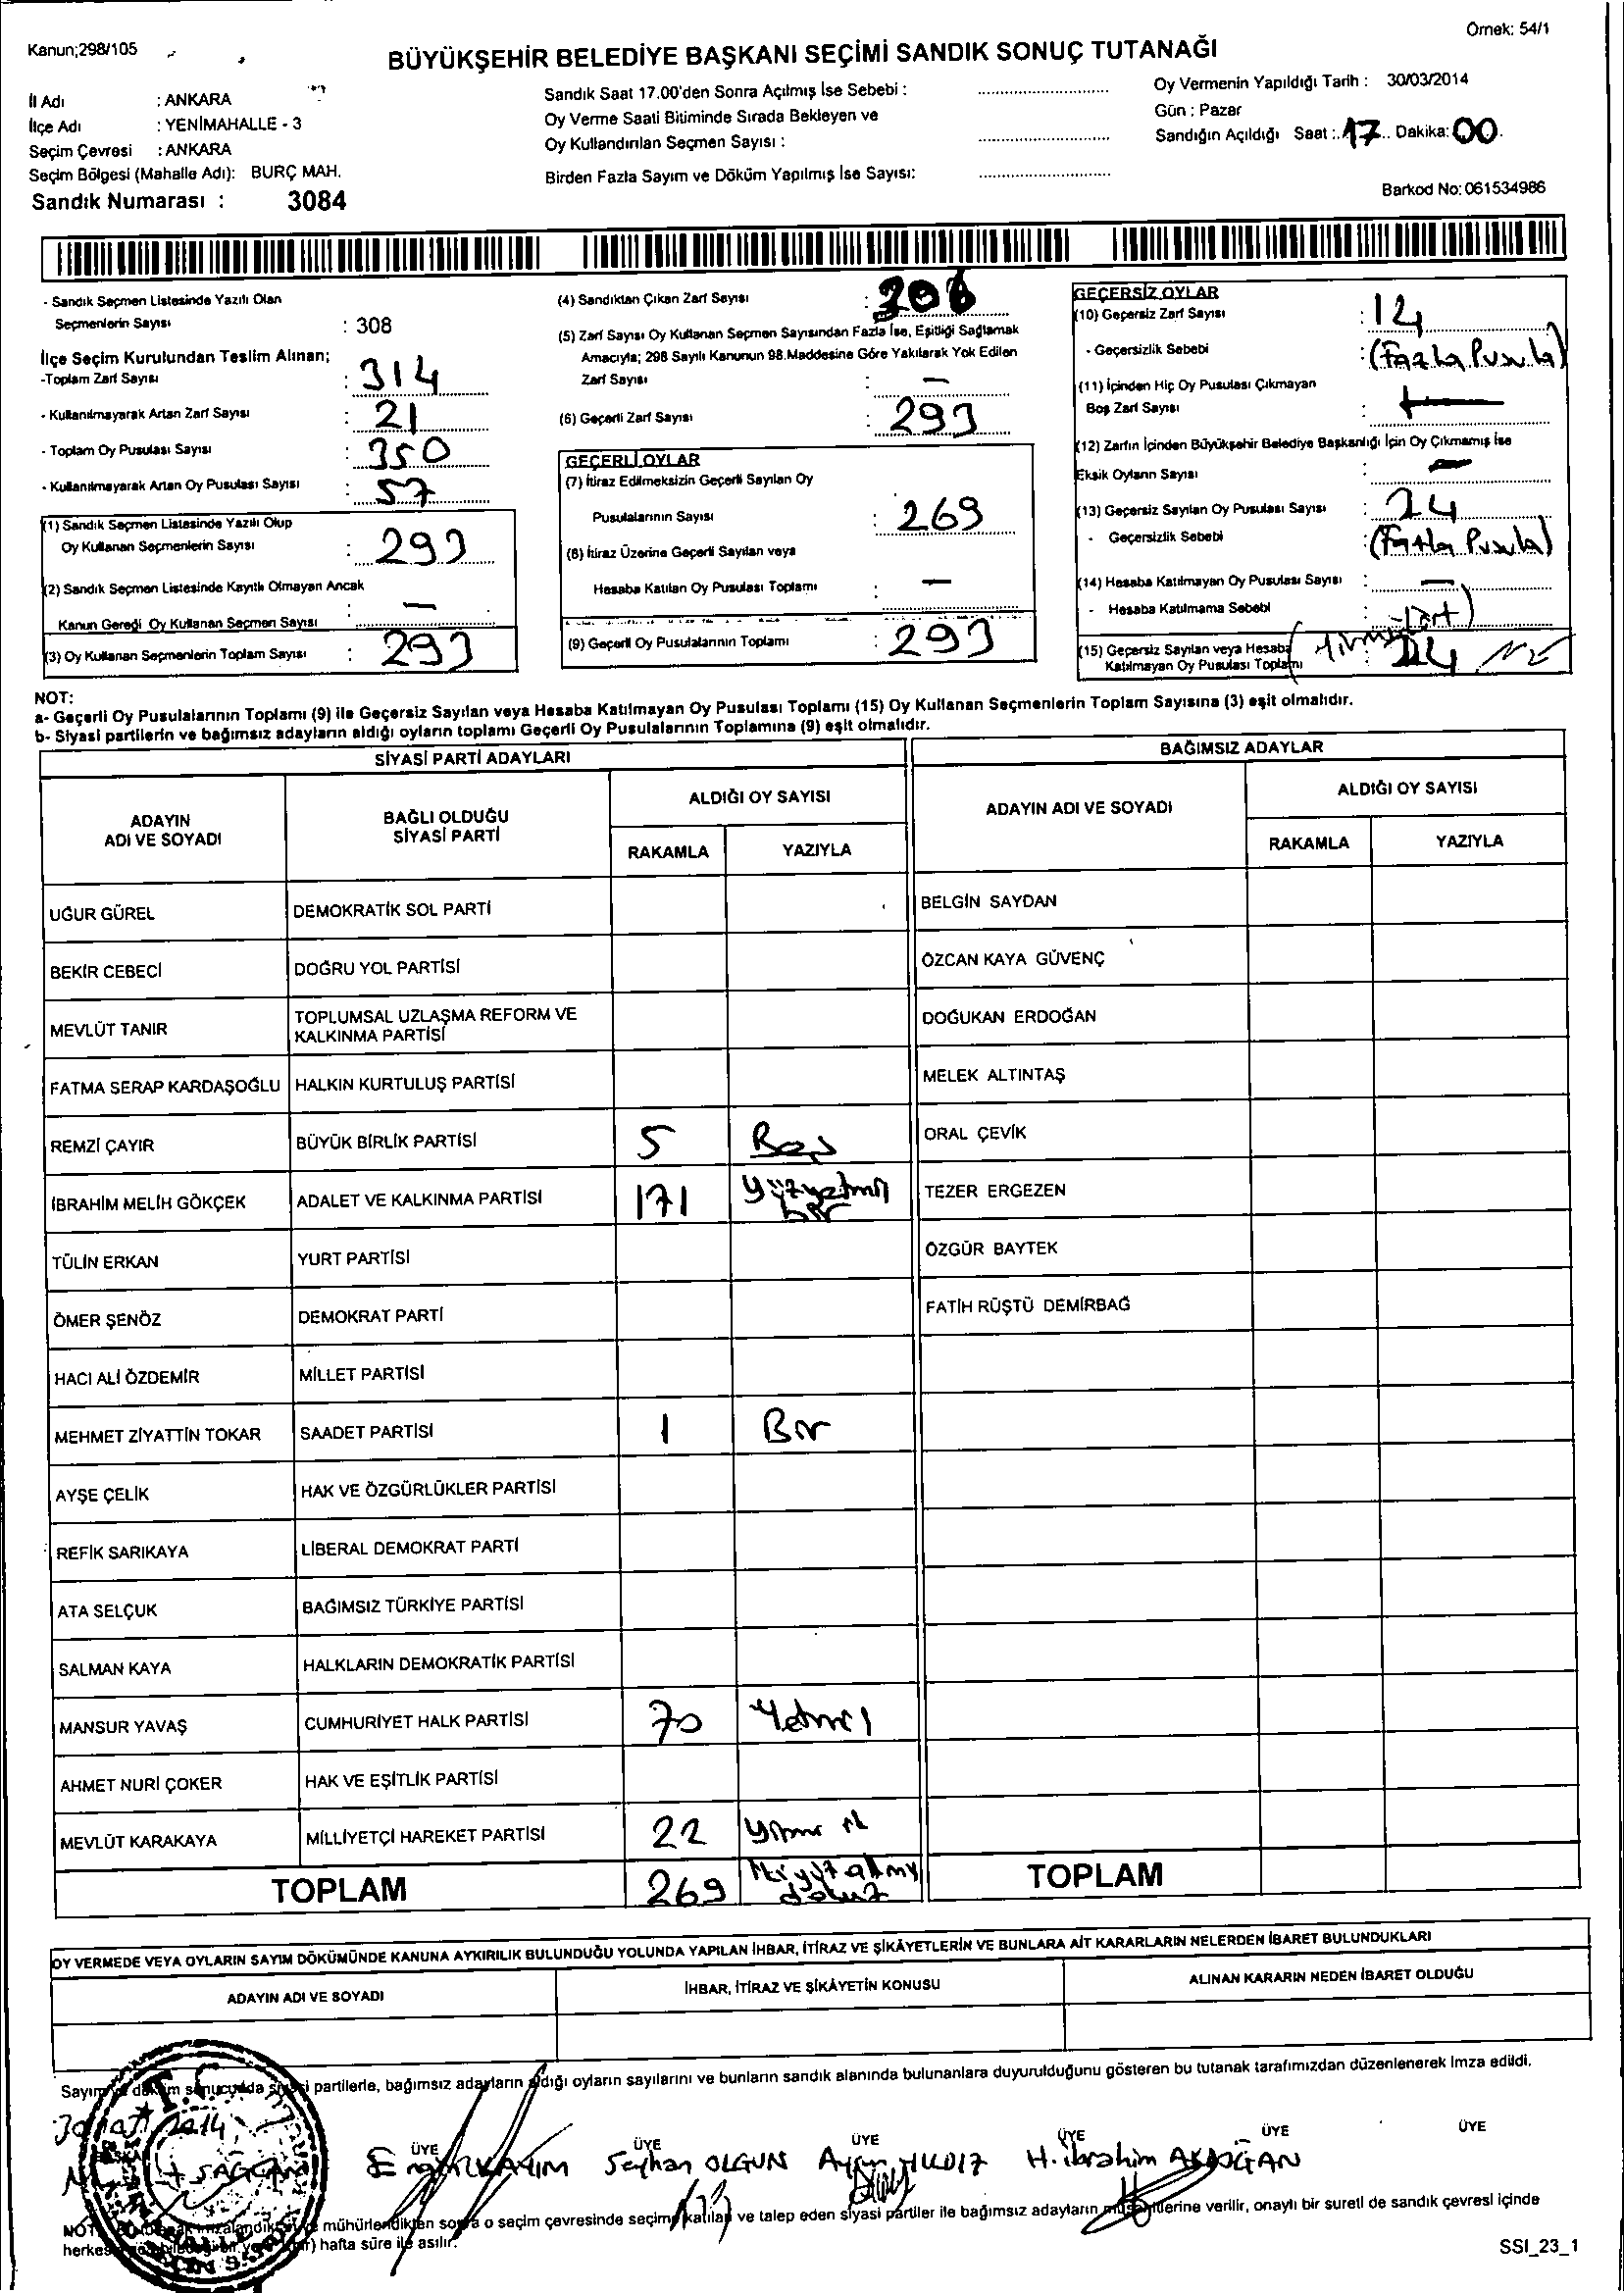 Kanun;298/105
Örnek: 54/1
BÜYÜKŞEHİR BELEDİYE BAŞKANI SEÇİMİ SANDIK SONUÇ TUTANAĞI
İl Adı : ANKARA
İlçe Adı : YENİMAHALLE - 3
Seçim Çevresi : ANKARA
Seçim Bölgesi (Mahalle Adı): BURÇ MAH.
Sandık Numarası : 3084
Sandık Saat 17.00'den Sonra Açılmış İse Sebebi :
Oy Verme Saati Bitiminde Sırada Bekleyen ve
Oy Kullandırılan Seçmen Sayısı :
Birden Fazla Sayım ve Döküm Yapılmış İse Sayısı:
Oy Vermenin Yapıldığı Tarih : 30/03/2014
Gün : Pazar
Sandığın Açıldığı Saat : 17 Dakika: 00
Barkod No: 061534986
- Sandık Seçmen Listesinde Yazılı Olan
Seçmenlerin Sayısı : 308
İlçe Seçim Kurulundan Teslim Alınan;
-Toplam Zarf Sayısı : 314
- Kullanılmayarak Artan Zarf Sayısı : 21
- Toplam Oy Pusulası Sayısı : 350
- Kullanılmayarak Artan Oy Pusulası Sayısı : 57
(1) Sandık Seçmen Listesinde Yazılı Olup
Oy Kullanan Seçmenlerin Sayısı : 293
(2) Sandık Seçmen Listesinde Kayıtlı Olmayan Ancak
Kanun Gereği Oy Kullanan Seçmen Sayısı : —
(3) Oy Kullanan Seçmenlerin Toplam Sayısı : 293
(4) Sandıktan Çıkan Zarf Sayısı :
(5) Zarf Sayısı Oy Kullanan Seçmen Sayısından Fazla İse, Eşitliği Sağlamak
Amacıyla; 298 Sayılı Kanunun 98.Maddesine Göre Yakılarak Yok Edilen
Zarf Sayısı : —
(6) Geçerli Zarf Sayısı : 293
GEÇERLİ OYLAR
(7) İtiraz Edilmeksizin Geçerli Sayılan Oy
Pusulalarının Sayısı : 269
(8) İtiraz Üzerine Geçerli Sayılan veya
Hesaba Katılan Oy Pusulası Toplamı : —
(9) Geçerli Oy Pusulalarının Toplamı : 293
GEÇERSİZ OYLAR
(10) Geçersiz Zarf Sayısı :
- Geçersizlik Sebebi : (Fazla Pusula)
(11) İçinden Hiç Oy Pusulası Çıkmayan
Boş Zarf Sayısı :
(12) Zarfın İçinden Büyükşehir Belediye Başkanlığı İçin Oy Çıkmamış İse
Eksik Oyların Sayısı : —
(13) Geçersiz Sayılan Oy Pusulası Sayısı : 24
- Geçersizlik Sebebi : (Fazla Pusula)
(14) Hesaba Katılmayan Oy Pusulası Sayısı : —
- Hesaba Katılmama Sebebi :
(15) Geçersiz Sayılan veya Hesaba
Katılmayan Oy Pusulası Toplamı 24
NOT:
a- Geçerli Oy Pusulalarının Toplamı (9) ile Geçersiz Sayılan veya Hesaba Katılmayan Oy Pusulası Toplamı (15) Oy Kullanan Seçmenlerin Toplam Sayısına (3) eşit olmalıdır.
b- Siyasi partilerin ve bağımsız adayların aldığı oyların toplamı Geçerli Oy Pusulalarının Toplamına (9) eşit olmalıdır.
SİYASİ PARTİ ADAYLARI
BAĞIMSIZ ADAYLAR
ADAYIN
ADI VE SOYADI
BAĞLI OLDUĞU
SİYASİ PARTİ
ALDIĞI OY SAYISI
RAKAMLA YAZIYLA
ADAYIN ADI VE SOYADI
ALDIĞI OY SAYISI
RAKAMLA YAZIYLA
UĞUR GÜREL DEMOKRATİK SOL PARTİ BELGİN SAYDAN
BEKİR CEBECİ DOĞRU YOL PARTİSİ ÖZCAN KAYA GÜVENÇ
MEVLÜT TANIR TOPLUMSAL UZLAŞMA REFORM VE
KALKINMA PARTİSİ DOĞUKAN ERDOĞAN
FATMA SERAP KARDAŞOĞLU HALKIN KURTULUŞ PARTİSİ MELEK ALTINTAŞ
REMZİ ÇAYIR BÜYÜK BİRLİK PARTİSİ 5 Beş ORAL ÇEVİK
İBRAHİM MELİH GÖKÇEK ADALET VE KALKINMA PARTİSİ 171 Yüzyetmiş TEZER ERGEZEN
bir
TÜLİN ERKAN YURT PARTİSİ ÖZGÜR BAYTEK
ÖMER ŞENÖZ DEMOKRAT PARTİ FATİH RÜŞTÜ DEMİRBAĞ
HACI ALİ ÖZDEMİR MİLLET PARTİSİ
MEHMET ZİYATTİN TOKAR SAADET PARTİSİ 1 Bir
AYŞE ÇELİK HAK VE ÖZGÜRLÜKLER PARTİSİ
REFİK SARIKAYA LİBERAL DEMOKRAT PARTİ
ATA SELÇUK BAĞIMSIZ TÜRKİYE PARTİSİ
SALMAN KAYA HALKLARIN DEMOKRATİK PARTİSİ
MANSUR YAVAŞ CUMHURİYET HALK PARTİSİ 70 Yetmiş
AHMET NURİ ÇOKER HAK VE EŞİTLİK PARTİSİ
MEVLÜT KARAKAYA MİLLİYETÇİ HAREKET PARTİSİ 22 Yirmi iki
TOPLAM 269 İkiyüzaltmış TOPLAM
dokuz
OY VERMEDE VEYA OYLARIN SAYIM DÖKÜMÜNDE KANUNA AYKIRILIK BULUNDUĞU YOLUNDA YAPILAN İHBAR, İTİRAZ VE ŞİKÂYETLERİN VE BUNLARA AİT KARARLARIN NELERDEN İBARET BULUNDUKLARI
ADAYIN ADI VE SOYADI İHBAR, İTİRAZ VE ŞİKÂYETİN KONUSU ALINAN KARARIN NEDEN İBARET OLDUĞU
Sayım ve döküm sonucunda siyasi partilerle, bağımsız adayların aldığı oyların sayılarını ve bunların sandık alanında bulunanlara duyurulduğunu gösteren bu tutanak tarafımızdan düzenlenerek imza edildi.
30 2014 T.C.
ÜYE ÜYE ÜYE ÜYE ÜYE ÜYE
Seyhan OLGUN YILDIZ H. İbrahim AKDOĞAN
mühürlendikten sonra o seçim çevresinde seçime katılan ve talep eden siyasi partiler ile bağımsız adayların müşahitlerine verilir, onaylı bir sureti de sandık çevresi içinde
hafta süre ile asılır.
SSI_23_1